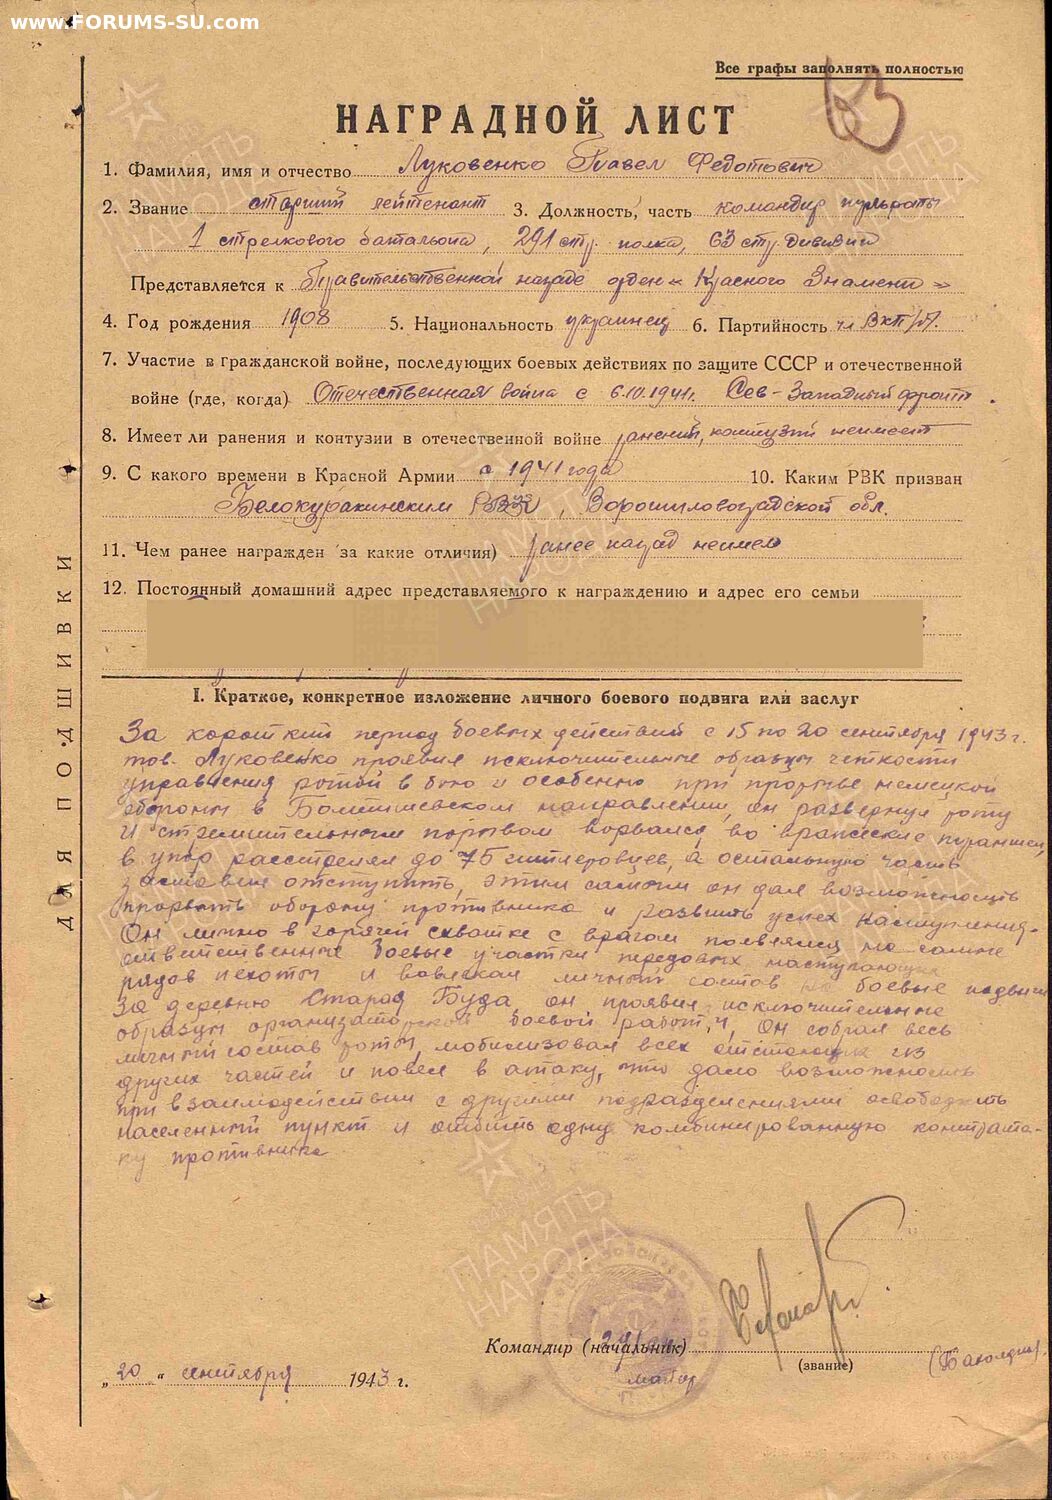 www.FORUMS-SU.com
Все графы заполнять полностью
63
НАГРАДНОЙ ЛИСТ
1. Фамилия, имя и отчество Луковенко Павел Федотович
2. Звание старший лейтенант 3. Должность, часть командир пульроты
1 стрелкового батальона, 291 стр. полка, 63 стр. дивизии
Представляется к Правительственной награде орден „Красного Знамени"
4. Год рождения 1908 5. Национальность украинец 6. Партийность чл ВКП/б/.
7. Участие в гражданской войне, последующих боевых действиях по защите СССР и отечественной
войне (где, когда) Отечественная война с 6.10.1941г. Сев-Западный фронт.
8. Имеет ли ранения и контузии в отечественной войне ранений, контузий неимеет
9. С какого времени в Красной Армии с 1941 года 10. Каким РВК призван
Белокуракинским РВК, Ворошиловоградской обл.
11. Чем ранее награжден за какие отличия) ранее наград неимел
12. Постоянный домашний адрес представляемого к награждению и адрес его семьи
I. Краткое, конкретное изложение личного боевого подвига или заслуг
За короткий период боевых действий с 15 по 20 сентября 1943 г.
тов. Луковенко проявил исключительные образцы четкости
управления ротой в бою и особенно при прорыве немецкой
обороны в направлении, он развернул роту
и стремительным порывом ворвался во вражеские траншеи,
в упор расстрелял до 75 гитлеровцев, а остальную часть
заставил отступить, этим самым он дал возможность
прорвать оборону противника и развить успех наступления.
Он лично в горячей схватке с врагом появлялся на самые
ответственные боевые участки передовых наступающих
рядов пехоты и вовлекал личный состав на боевые подвиги
За деревню Старая Буда, он проявил исключительные
образцы организаторской боевой работы, Он собрал весь
личный состав роты, мобилизовал всех отстающих из
других частей и повел в атаку, что дало возможность
при взаимодействии с другими подразделениями освободить
населенный пункт и отбить одну комбинированную контрата-
ку противника
Командир (начальник)
291
майор
(звание)
„20" сентября 1943 г.
ДЛЯ ПОДШИВКИ
ПАМЯТЬ НАРОДА